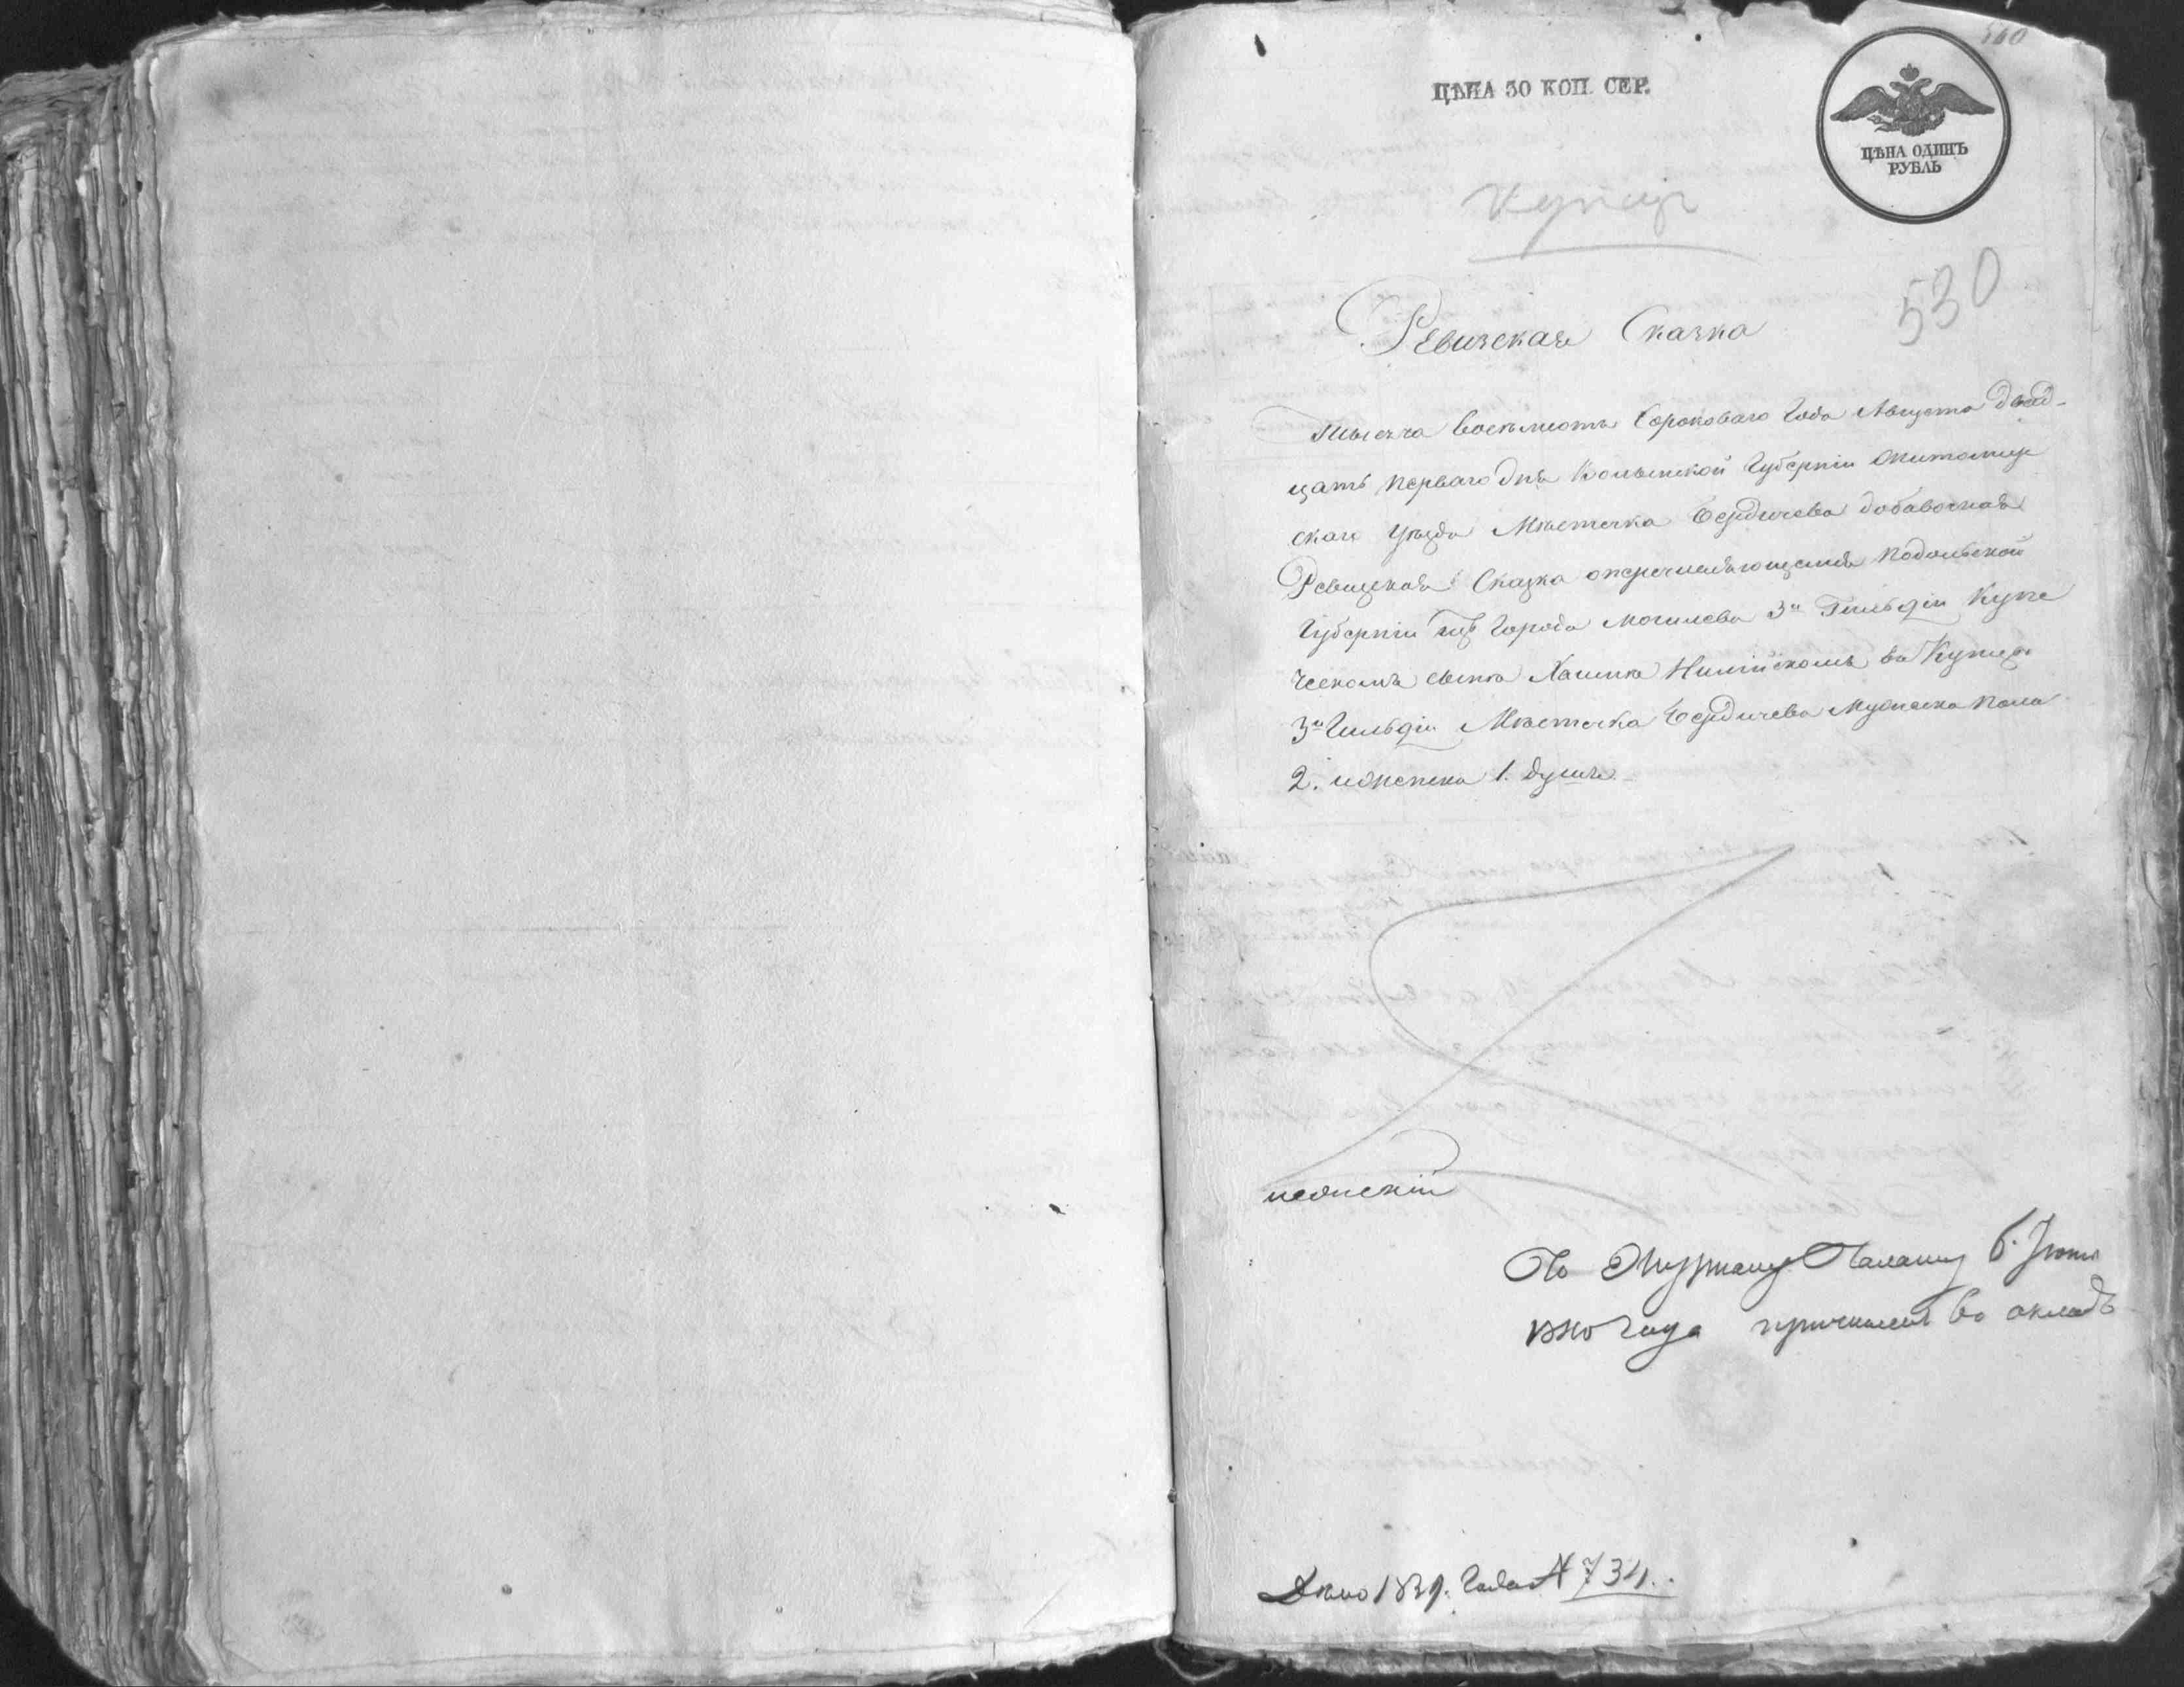 ЦѢНА 50 КОП. СЕР.
ЦѢНА ОДИНЪ
РУБЛЬ
Купцы
530
Ревизская Сказка
тысяча восемьсотъ сороковаго Года Августа двад-
цать перваго дня Волынской Губерніи Житомир
скаго уѣзда Мѣстечка Бердичева добавочная
Ревизская Сказка о перечисляющемся Подольской
Губерніи изъ Города Могилева 3й Гильдіи Купе
ческомъ сынѣ въ Купцы
3й Гильдіи Мѣстечка Бердичева мужеска пола
2. и женска 1. души
По Журналу Палаты 6.
1840 года причислен въ окладъ
Дѣло 1839. Года № 734.